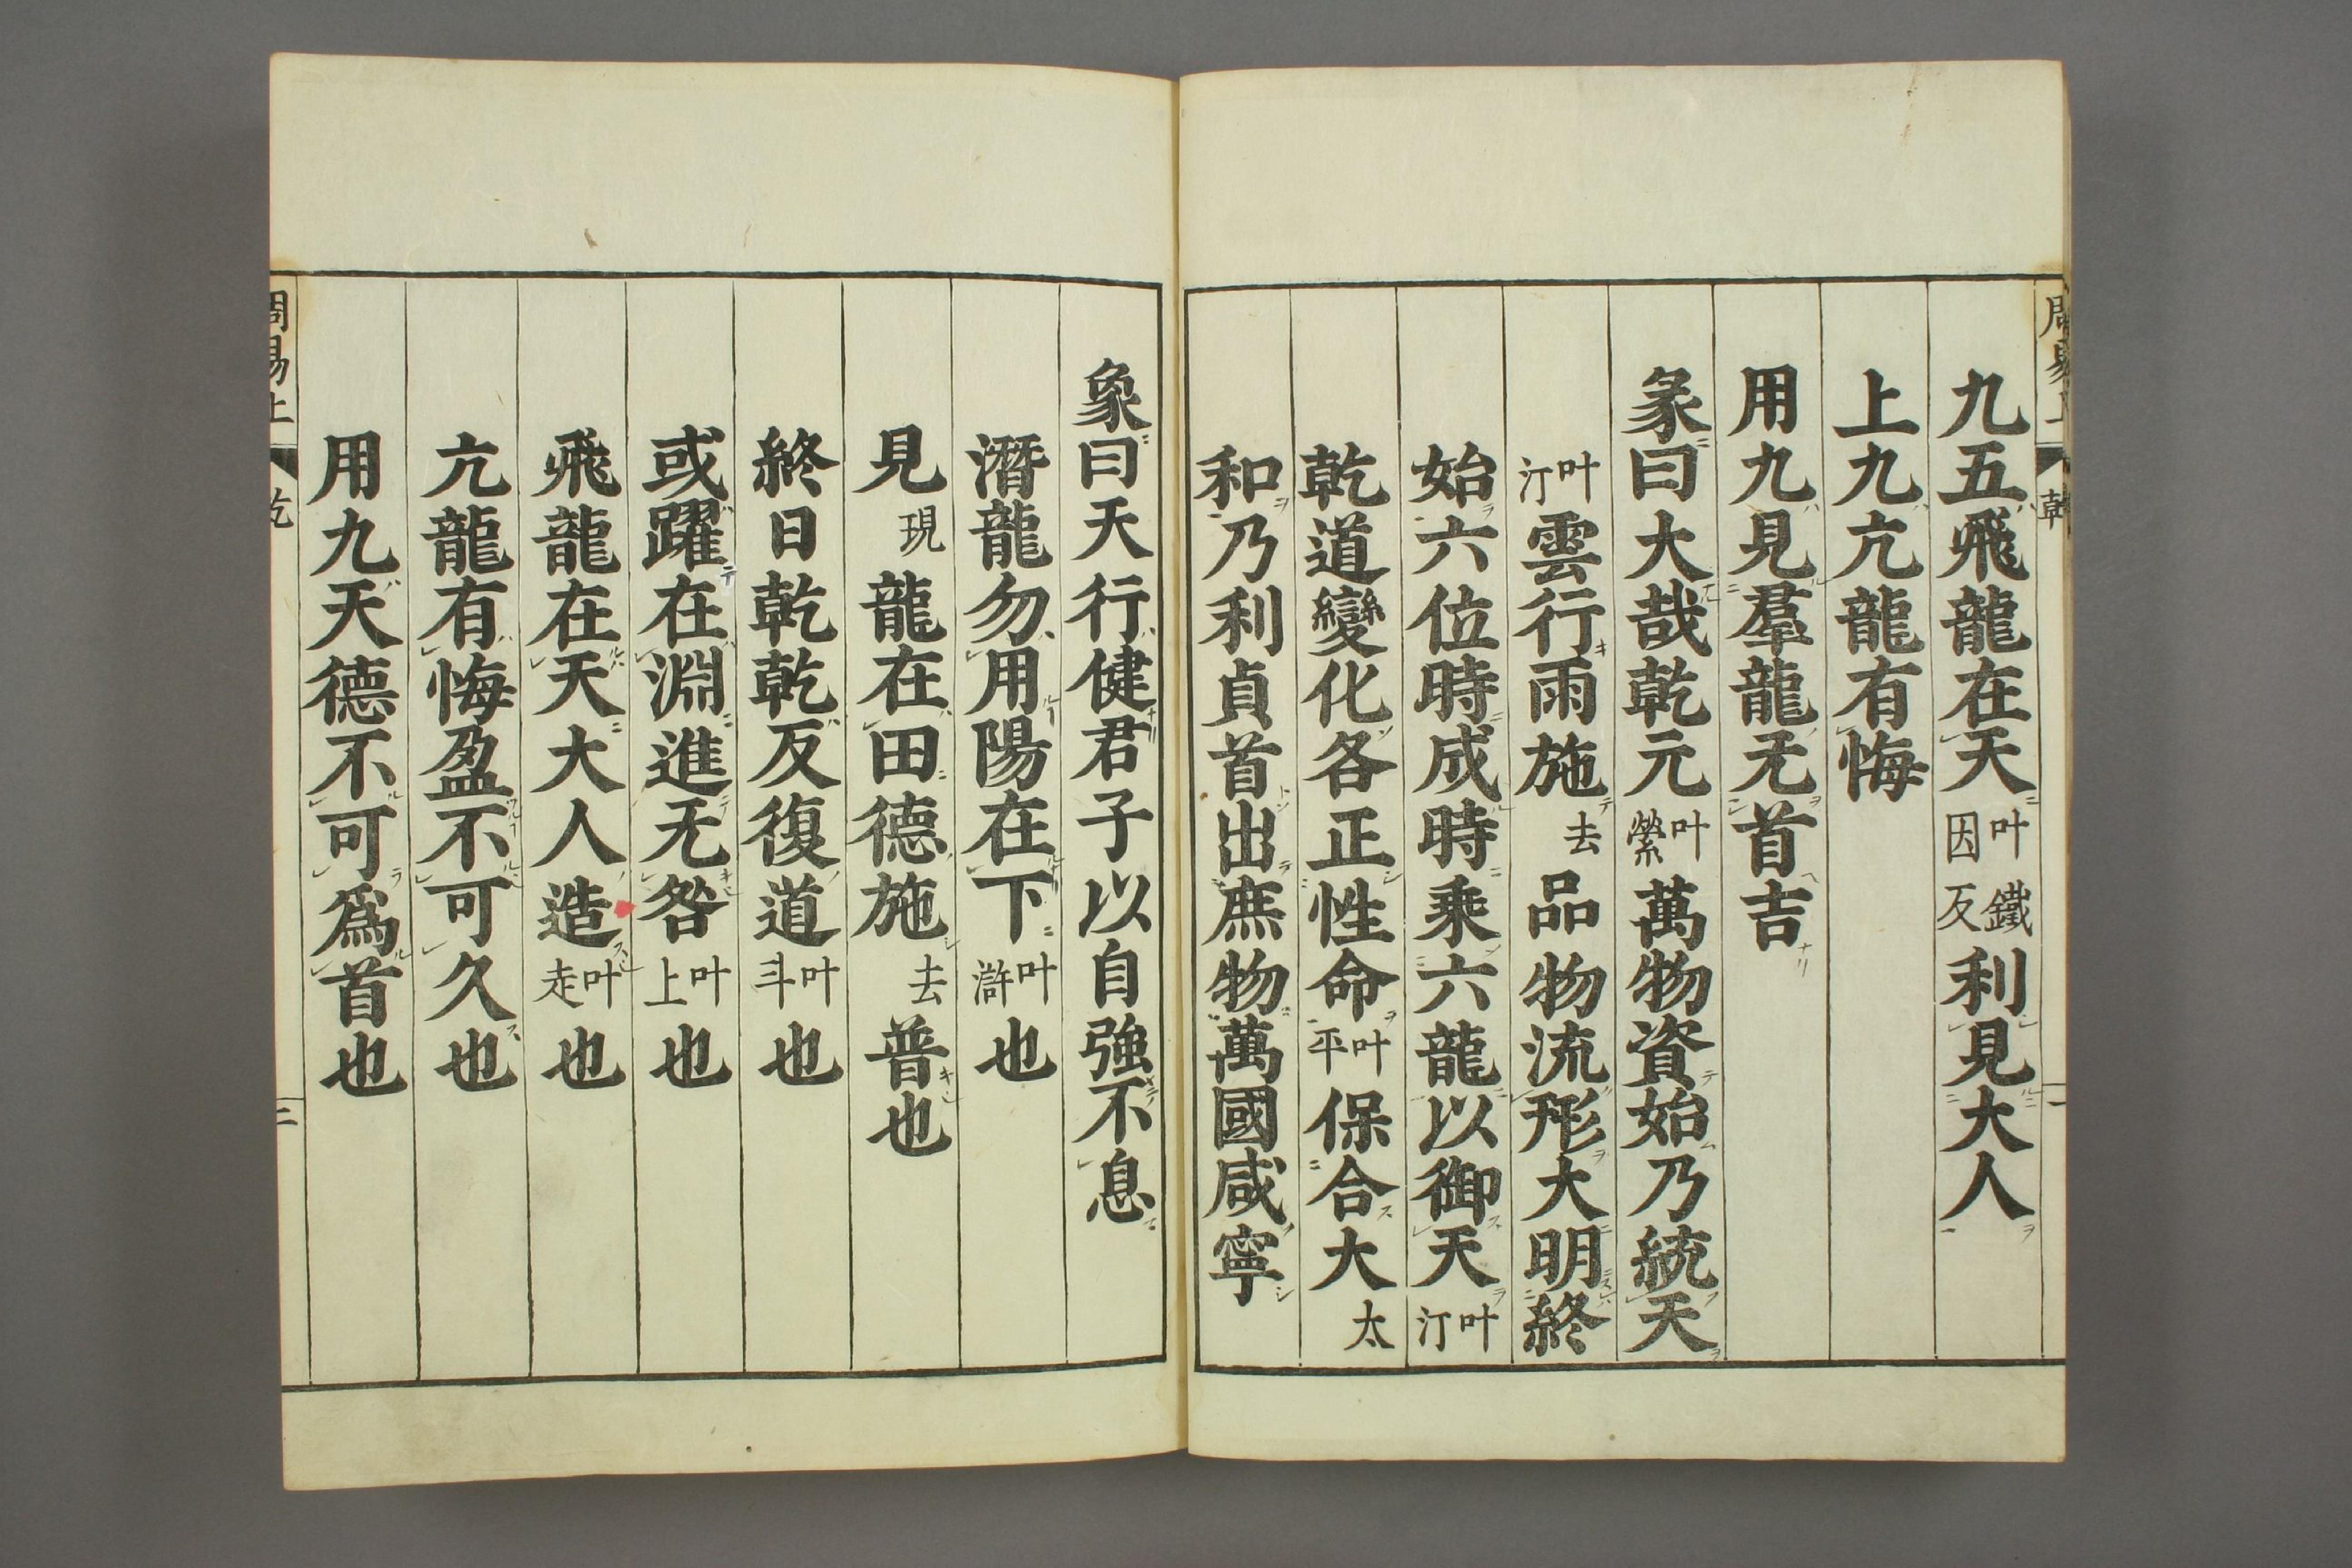 周易上 乾 一
九五飛龍在天叶鐵因反利見大人
上九亢龍有悔
用九見羣龍无首吉
彖曰大哉乾元叶縈萬物資始乃統天
叶汀雲行雨施去品物流形大明終
始六位時成時乘六龍以御天叶汀
乾道變化各正性命叶平保合大太
和乃利貞首出庶物萬國咸寧
象曰天行健君子以自強不息
潛龍勿用陽在下叶滸也
見現龍在田德施去普也
終日乾乾反復道叶斗也
或躍在淵進无咎叶上也
飛龍在天大人造叶走也
亢龍有悔盈不可久也
用九天德不可爲首也
周易上 乾 二